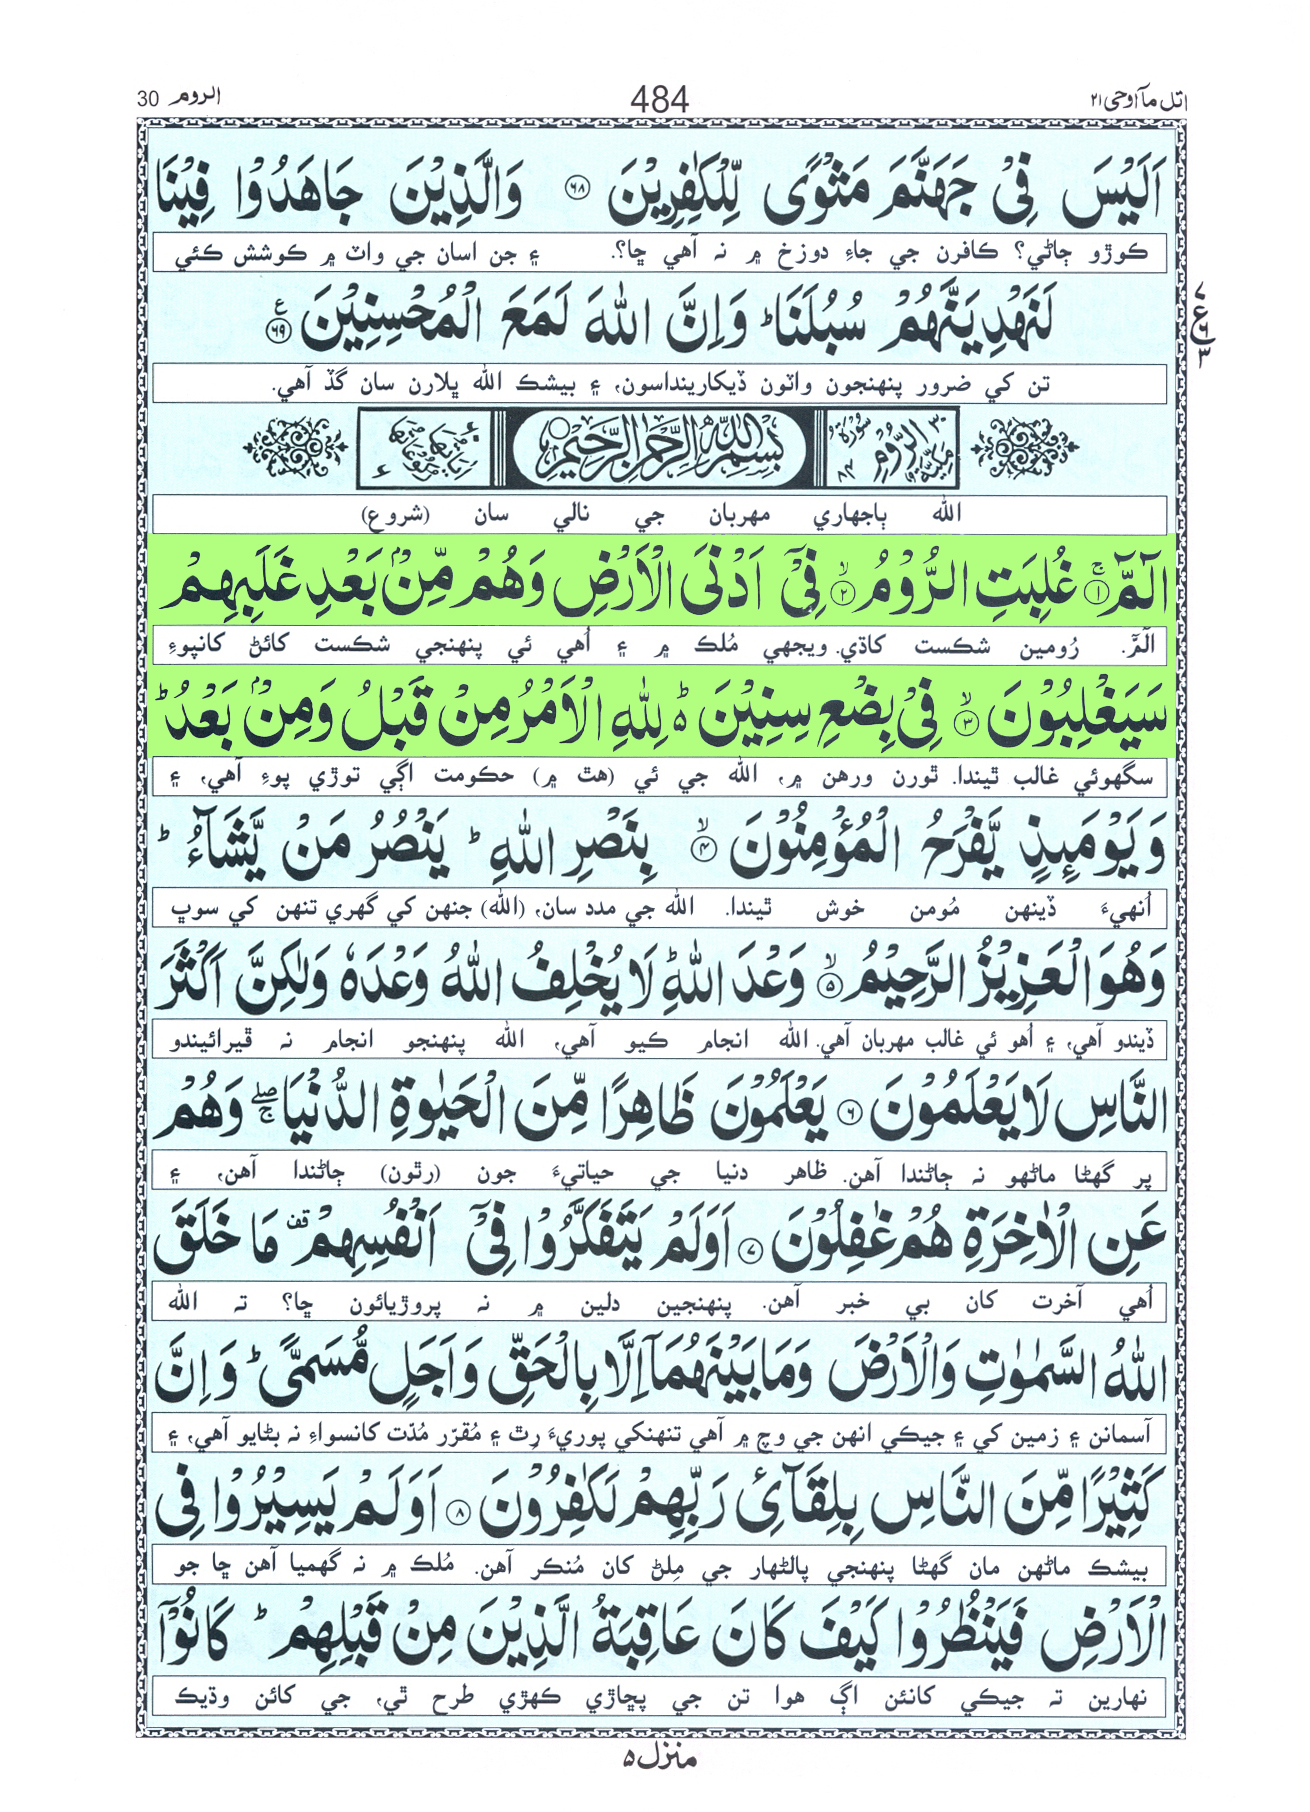 اتل مآ اوحی ٢١
484
الروم 30
اَلَيْسَ فِيْ جَهَنَّمَ مَثْوًى لِّلْكٰفِرِيْنَ ﴿٦٨﴾ وَالَّذِيْنَ جَاهَدُوْا فِيْنَا
ڪوڙو ڄاڻي؟ ڪافرن جي جاءِ دوزخ ۾ نہ آهي ڇا؟. ۽ جن اسان جي واٽ ۾ ڪوشش ڪئي
لَنَهْدِيَنَّهُمْ سُبُلَنَا ؕ وَاِنَّ اللّٰهَ لَمَعَ الْمُحْسِنِيْنَ ﴿٦٩﴾ ع
تن کي ضرور پنهنجون واٽون ڏيکارينداسون، ۽ بيشڪ الله ڀلارن سان گڏ آهي.
سُوْرَةُ الرُّوْمِ مَكِّيَّةٌ ٣٠ ٨٤
بِسْمِ اللّٰهِ الرَّحْمٰنِ الرَّحِيْمِ
الله ٻاجهاري مهربان جي نالي سان (شروع)
الٓمّٓ ۚ﴿١﴾ غُلِبَتِ الرُّوْمُ ۙ﴿٢﴾ فِيْٓ اَدْنَى الْاَرْضِ وَهُمْ مِّنْۢ بَعْدِ غَلَبِهِمْ
الٓمّٓ. رُومين شڪست کاڌي. ويجهي مُلڪ ۾ ۽ اُهي ئي پنهنجي شڪست کائڻ کانپوءِ
سَيَغْلِبُوْنَ ۙ﴿٣﴾ فِيْ بِضْعِ سِنِيْنَ ؕ۬ لِلّٰهِ الْاَمْرُ مِنْ قَبْلُ وَمِنْۢ بَعْدُ ؕ
سگهوئي غالب ٿيندا. ٿورن ورهن ۾، الله جي ئي (هٿ ۾) حڪومت اڳي توڙي پوءِ آهي، ۽
وَيَوْمَئِذٍ يَّفْرَحُ الْمُؤْمِنُوْنَ ۙ﴿٤﴾ بِنَصْرِ اللّٰهِ ؕ يَنْصُرُ مَنْ يَّشَآءُ ؕ
اُنهيءَ ڏينهن مُومن خوش ٿيندا. الله جي مدد سان، (الله) جنهن کي گهري تنهن کي سوڀ
وَهُوَ الْعَزِيْزُ الرَّحِيْمُ ۙ﴿٥﴾ وَعْدَ اللّٰهِ ؕ لَا يُخْلِفُ اللّٰهُ وَعْدَهٗ وَلٰكِنَّ اَكْثَرَ
ڏيندو آهي، ۽ اُهو ئي غالب مهربان آهي. الله انجام ڪيو آهي، الله پنهنجو انجام نہ ڦيرائيندو
النَّاسِ لَا يَعْلَمُوْنَ ﴿٦﴾ يَعْلَمُوْنَ ظَاهِرًا مِّنَ الْحَيٰوةِ الدُّنْيَا ۖۚ وَهُمْ
پر گهڻا ماڻهو نہ ڄاڻندا آهن. ظاهر دنيا جي حياتيءَ جون (رٿون) ڄاڻندا آهن، ۽
عَنِ الْاٰخِرَةِ هُمْ غٰفِلُوْنَ ﴿٧﴾ اَوَلَمْ يَتَفَكَّرُوْا فِيْٓ اَنْفُسِهِمْ قف مَا خَلَقَ
اُهي آخرت کان بي خبر آهن. پنهنجين دلين ۾ نہ پروڙيائون ڇا؟ تہ الله
اللّٰهُ السَّمٰوٰتِ وَالْاَرْضَ وَمَا بَيْنَهُمَآ اِلَّا بِالْحَقِّ وَاَجَلٍ مُّسَمًّى ؕ وَاِنَّ
آسمانن ۽ زمين کي ۽ جيڪي انهن جي وچ ۾ آهي تنهنکي پوريءَ رِٿ ۽ مُقرّر مُدّت کانسواءِ نہ بڻايو آهي، ۽
كَثِيْرًا مِّنَ النَّاسِ بِلِقَآئِ رَبِّهِمْ لَكٰفِرُوْنَ ﴿٨﴾ اَوَلَمْ يَسِيْرُوْا فِي
بيشڪ ماڻهن مان گهڻا پنهنجي پالڻهار جي مِلڻ کان مُنڪر آهن. مُلڪ ۾ نہ گهميا آهن ڇا جو
الْاَرْضِ فَيَنْظُرُوْا كَيْفَ كَانَ عَاقِبَةُ الَّذِيْنَ مِنْ قَبْلِهِمْ ؕ كَانُوْٓا
نهارين تہ جيڪي کانئن اڳ هوا تن جي پڇاڙي ڪهڙي طرح ٿي، جي کائن وڌيڪ
منزل ٥